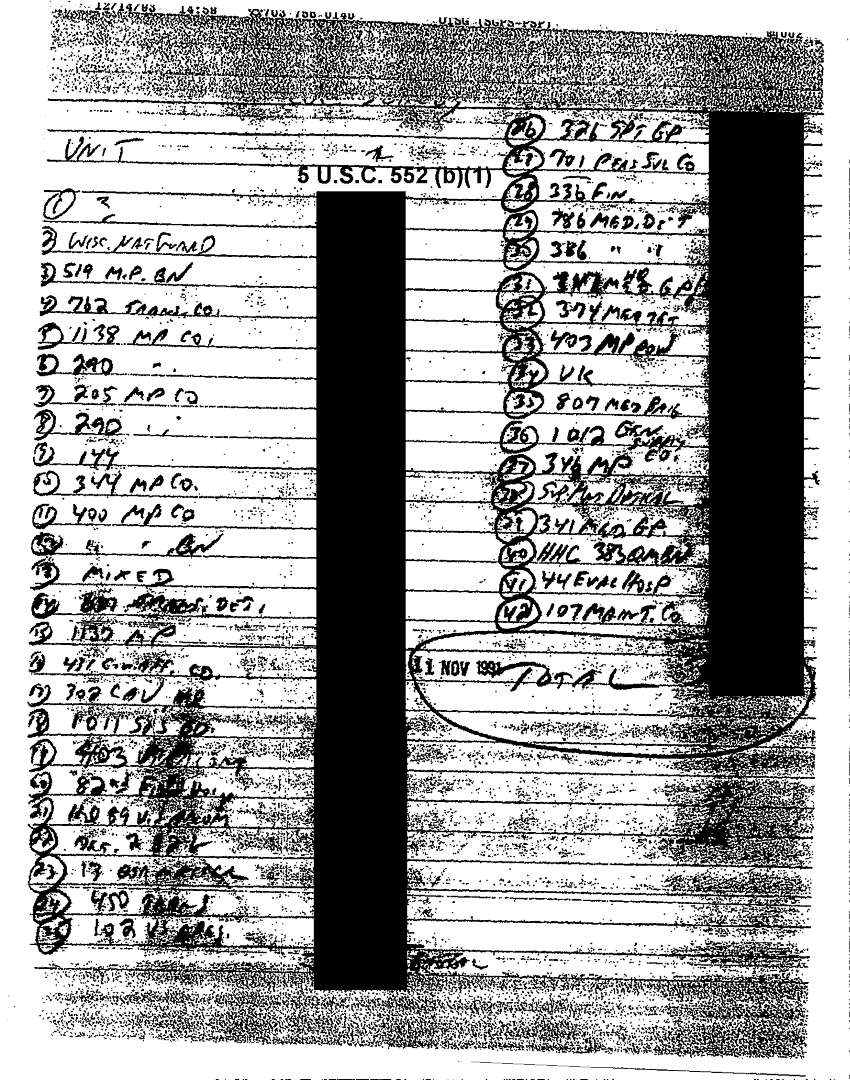 12/14/93 14:58 703 756 0140 OTSG (SGPS-PSP)
UNIT
5 U.S.C. 552 (b)(1)
1 ?
2 WISC. NAT GUARD
3 519 M.P. BN
4 762 TRANS. CO.
5 1138 MP CO.
6 290 " .
7 205 MP CO
8 290 "
9 144
10 344 MP CO.
11 400 MP CO
12 " " , BN
13 MIXED
14 DET.
15 1137 MP
16 431 CIV. AFF. CO.
17 302 CAV
18 1011 CO.
19 403
20 82nd FIELD HOSP
21
22 DET.
23 13
24 450
25 102
26 326 SPT GP
27 701 PERS SVC CO
28 336 FIN.
29 786 MED. DET
30 386 " "
31 MED GP
32 374 MED DET
33 403 MP POW
34 UK
35 807 MED BRIG
36 1012 GEN SUPPLY CO.
37 346 MP
38
39 341 MED. GP.
40 HHC 383 QM BN
41 44 EVAC HOSP
42 107 MAINT. CO
11 NOV 1991 TOTAL